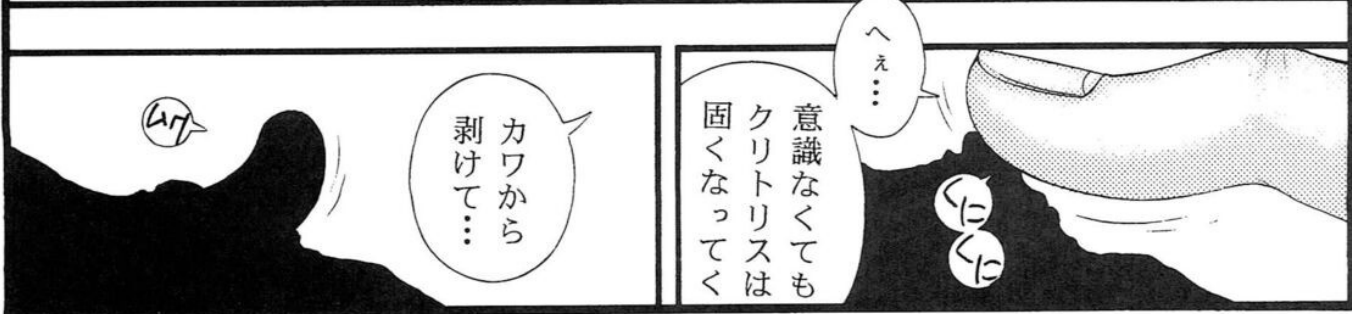 へぇ…
意識なくても
クリトリスは
固くなってく
くに
くに
カワから
剥けて…
ムク